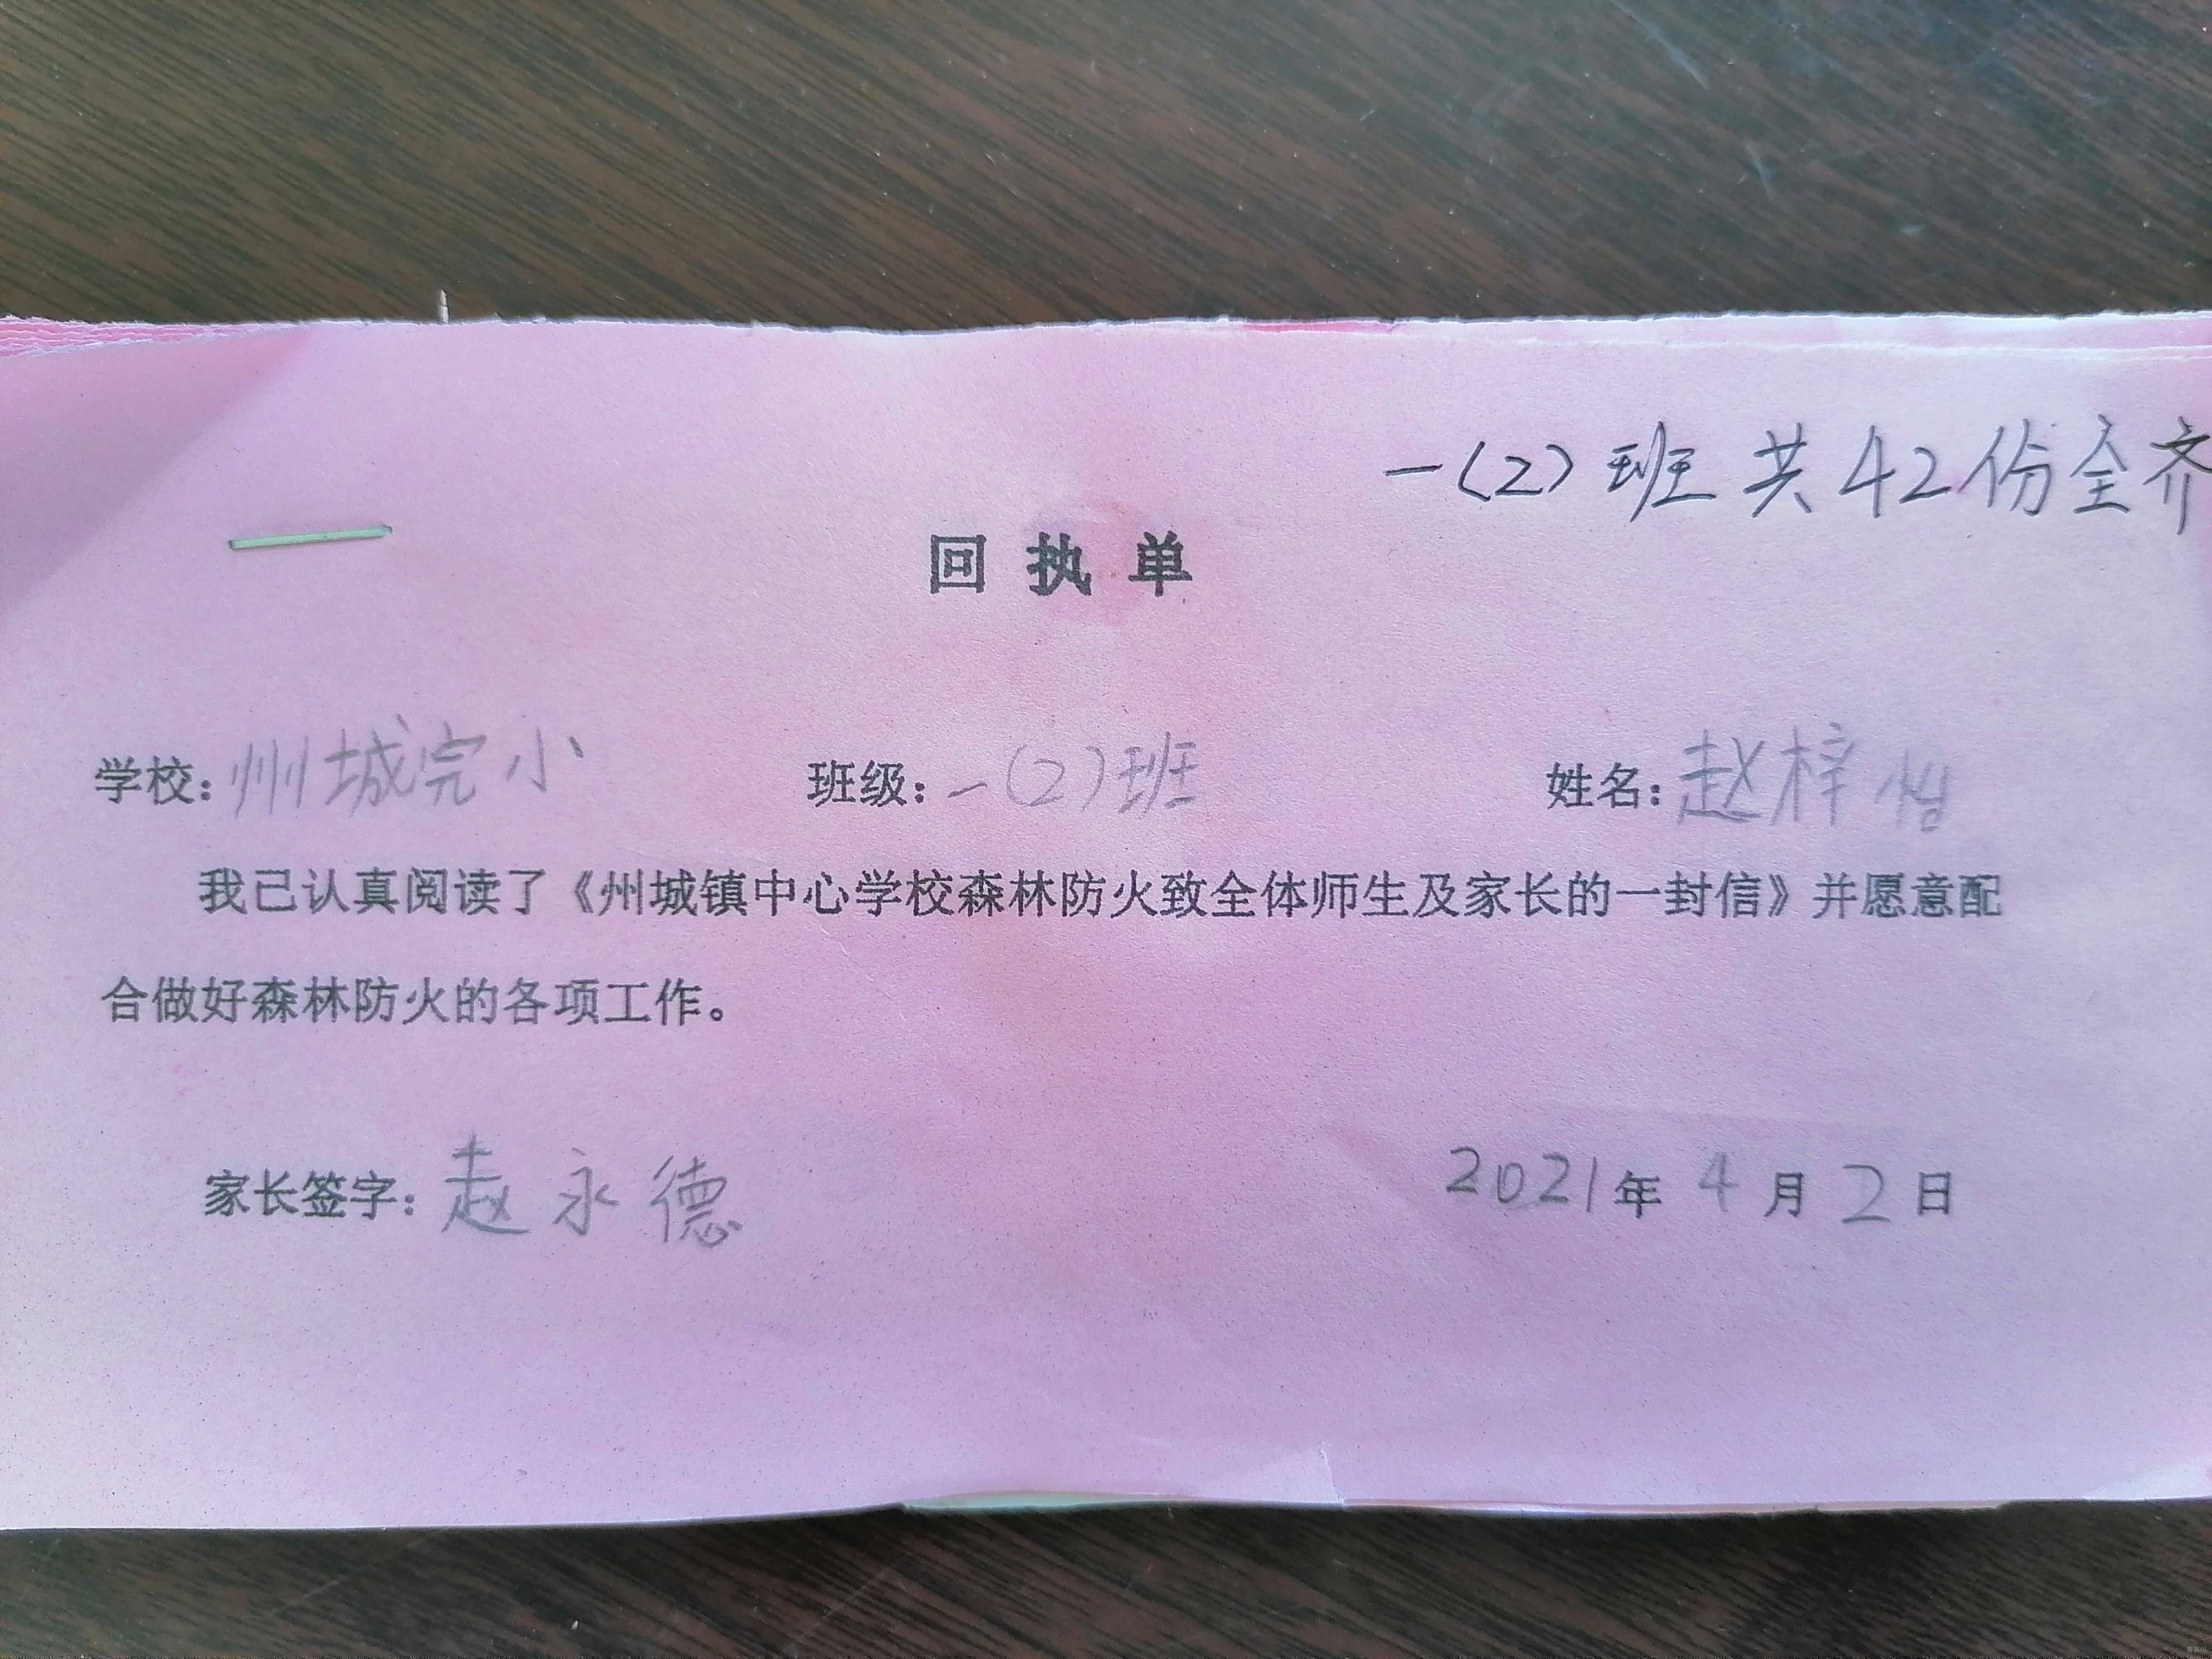 一(2)班共42份全齐
回执单
学校:州城完小 班级:一(2)班 姓名:赵梓怡
我已认真阅读了《州城镇中心学校森林防火致全体师生及家长的一封信》并愿意配
合做好森林防火的各项工作。
家长签字:赵永德 2021年4月2日